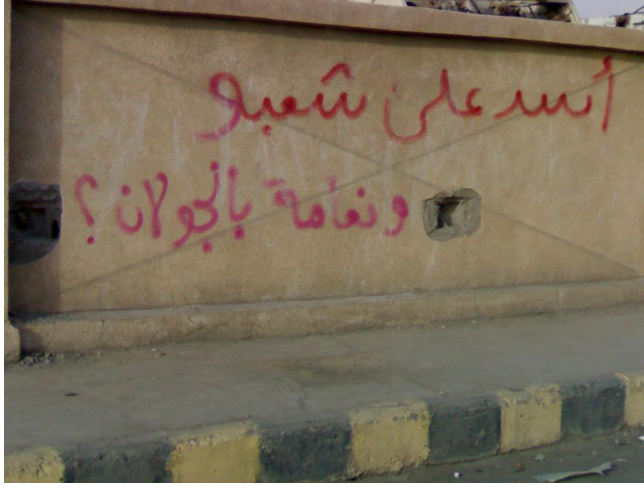 أسد على شعبو
ونعامة بالجولان؟